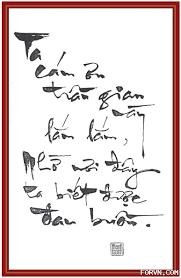 Ta
cám ơn
trần gian
này
lắm lắm,
Nhờ nơi đây
ta biết được
đau buồn.
FORVN.COM